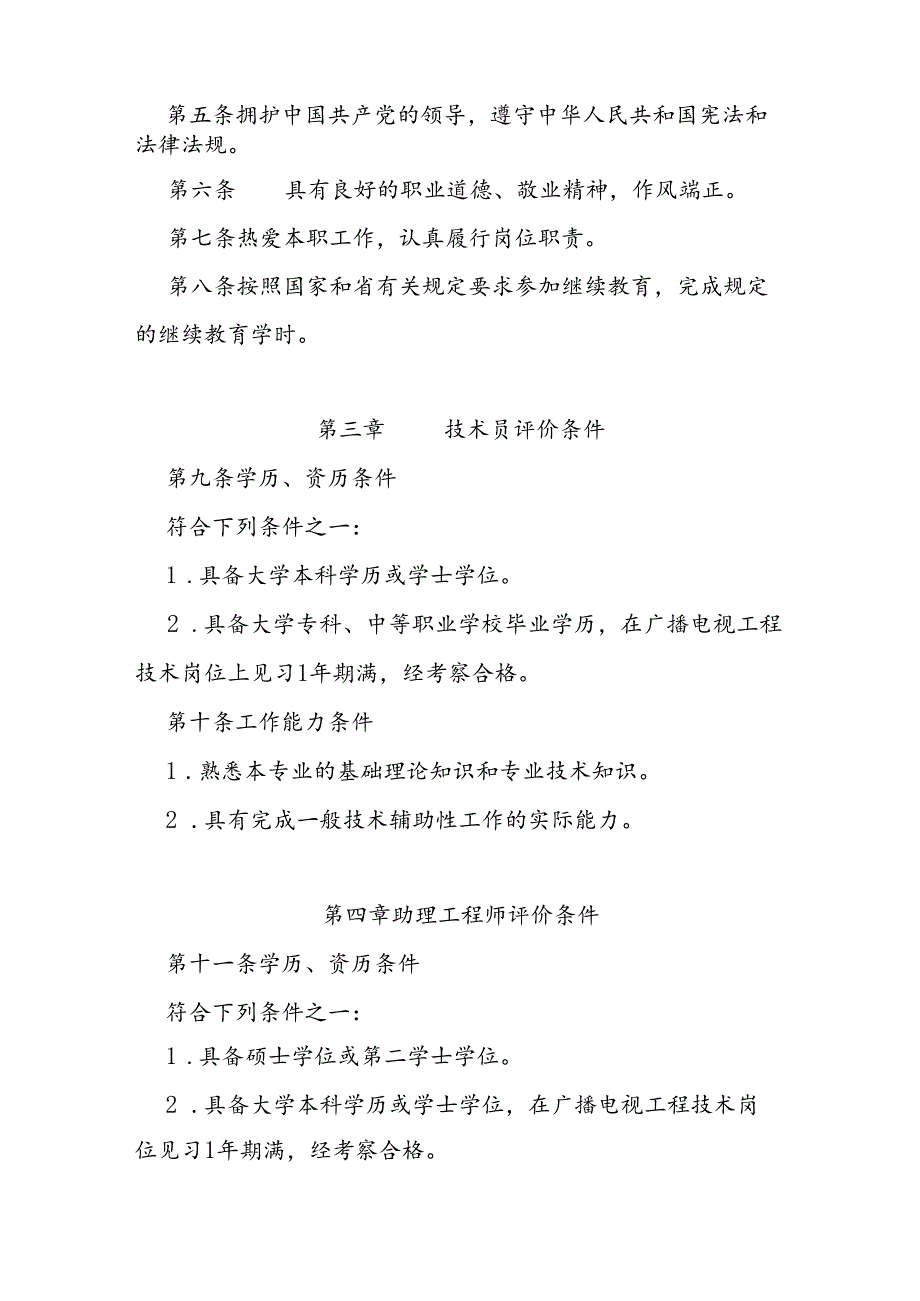 第五条拥护中国共产党的领导，遵守中华人民共和国宪法和
法律法规。
第六条　　具有良好的职业道德、敬业精神，作风端正。
第七条热爱本职工作，认真履行岗位职责。
第八条按照国家和省有关规定要求参加继续教育，完成规定
的继续教育学时。
第三章　　技术员评价条件
第九条学历、资历条件
符合下列条件之一：
1 .具备大学本科学历或学士学位。
2 .具备大学专科、中等职业学校毕业学历，在广播电视工程
技术岗位上见习1年期满，经考察合格。
第十条工作能力条件
1 .熟悉本专业的基础理论知识和专业技术知识。
2 .具有完成一般技术辅助性工作的实际能力。
第四章助理工程师评价条件
第十一条学历、资历条件
符合下列条件之一：
1 .具备硕士学位或第二学士学位。
2 .具备大学本科学历或学士学位，在广播电视工程技术岗
位见习1年期满，经考察合格。